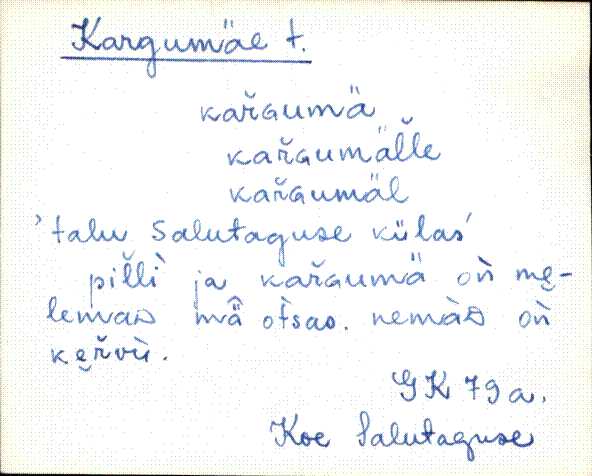 Kargumäe t.
kař̆ɢumä
kař̆ɢumäl̆le
kař̆ɢumäl
'talu Salutaguse külas'
pil̆lì ja kař̆ɢumä òǹ mę-
lemas mä̂ òtsas. nemàᴅ òǹ
kęr̆vù.
GK 79 a.
Koe Salutaguse